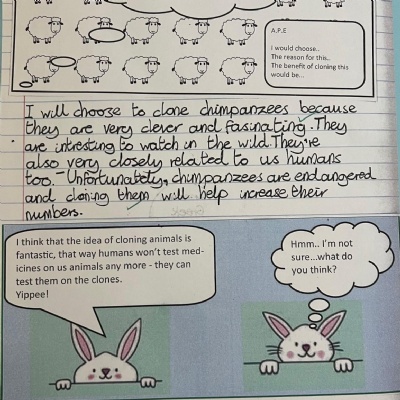 A.P.E
I would choose..
The reason for this..
The benefit of cloning this
would be...
I will choose to clone chimpanzees because
they are very clever and fasinating. They
are intresting to watch in the wild. They're
also very closely related to us humans
too. Unfortunately, chimpanzees are endangered
and cloning them will help increase their
numbers.
I think that the idea of cloning animals is
fantastic, that way humans won't test med-
icines on us animals any more - they can
test them on the clones.
Yippee!
Hmm.. I'm not
sure...what do
you think?